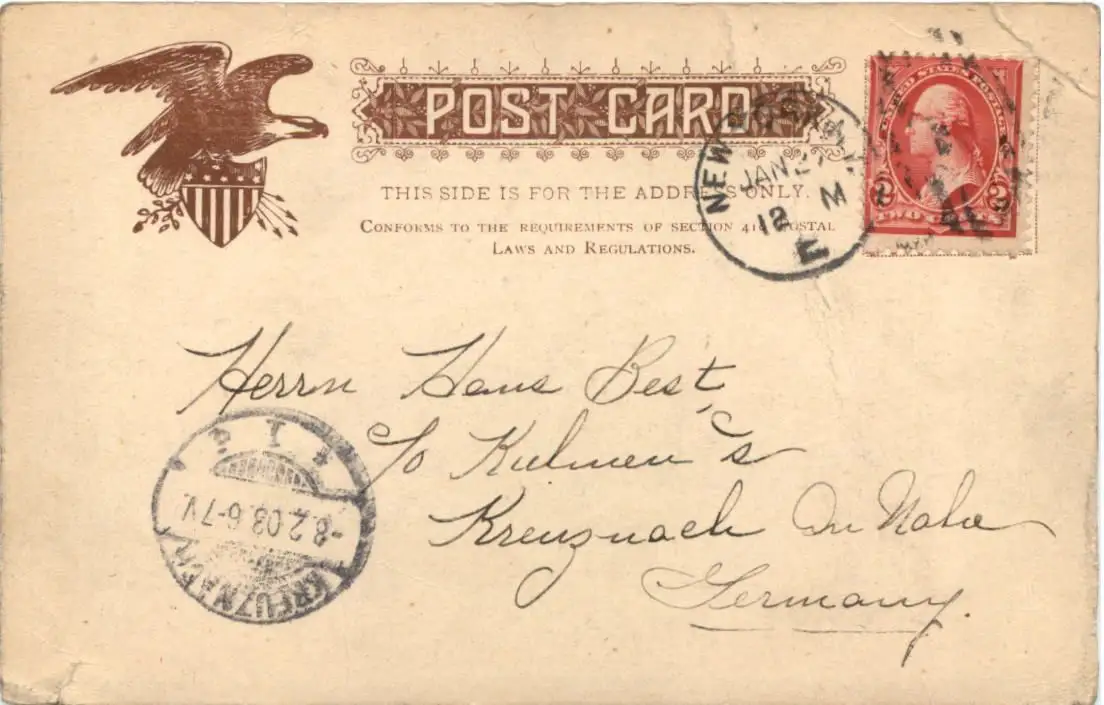 POST CARD
THIS SIDE IS FOR THE ADDRESS ONLY.
CONFORMS TO THE REQUIREMENTS OF SECTION 418 POSTAL
LAWS AND REGULATIONS.
NEW
JAN 2
12 M
E
UNITED STATES POSTAGE
2 2
TWO CENTS
Herrn Hans Best,
c/o Kulmen's
Kreuznach On Nahe
Germany.
KREUZNACH
-8.2.03.6-7V.